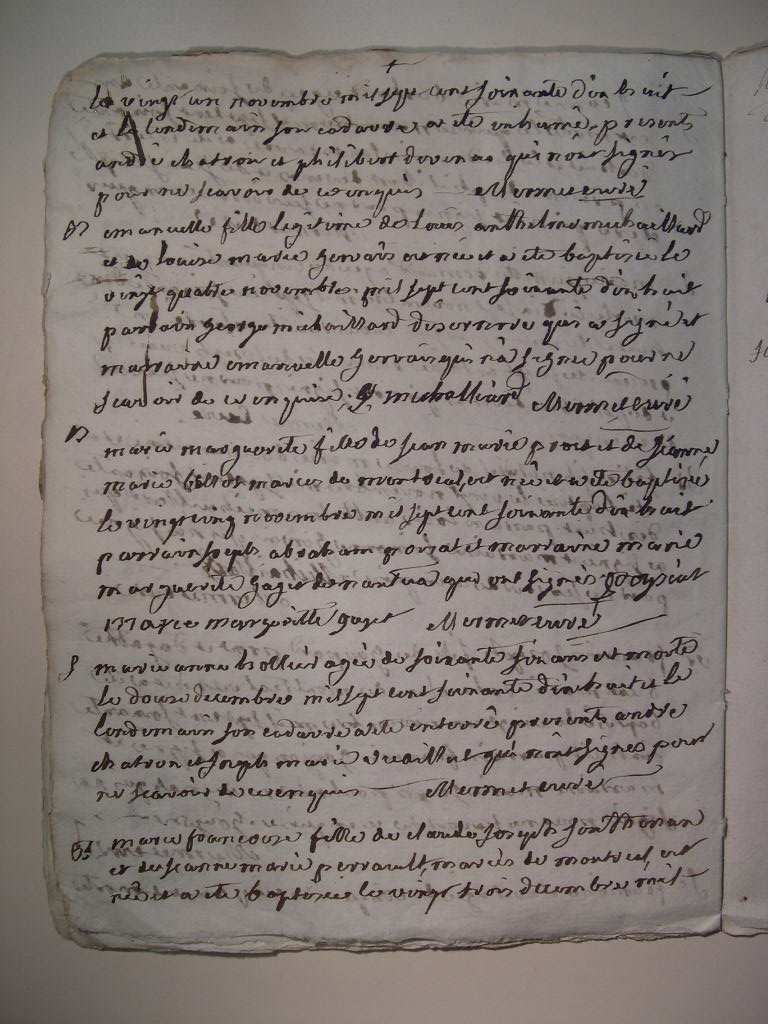 le vingt un novembre mil sept cent soixante dix huit
et le lendemain son cadavre a ete inhumé, presents
andré chatron et philibert qui n'ont signés
pour ne scavoir de ce enquis Mermet curé
B emanuelle fille legitime de louis anthelme michaillard
et de louise marie gervais est née et a ete baptisée le
vingt quatre novembre mil sept cent soixante dix huit
parrain george michaillard qui a signé et
marraine emanuelle gervais qui n'a signé pour ne
scavoir de ce enquise, G michalliard Mermet curé
B marie marguerite fille de jean marie et de jeanne
marie mariés de montreal, est née et a ete baptisée
le vingt cinq novembre mil sept cent soixante dix huit
parrain joseph abraham et marraine marie
marguerite gaget de nantua qui ont signés
marie margueritte gaget Mermet curé
S marie anne hollier agée de soixante six ans est morte
le douze decembre mil sept cent soixante dix huit et le
lendemain son cadavre a ete enterré presents andré
chatron et joseph marie qui n'ont signés pour
ne scavoir de ce enquis Mermet curé
B marie françoise fille de claude joseph
et de jeanne marie perrault, mariés de montreal, est
née et a ete baptisée le vingt trois decembre mil